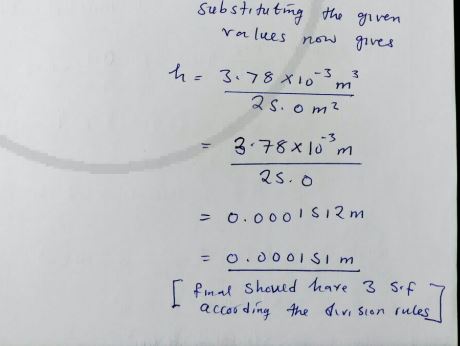 Substituting the given
values now gives
h = 3.78 × 10⁻³ m³
25.0 m²
= 3.78 × 10⁻³ m
25.0
= 0.0001512 m
= 0.000151 m
[final should have 3 s.f
according the division rules]